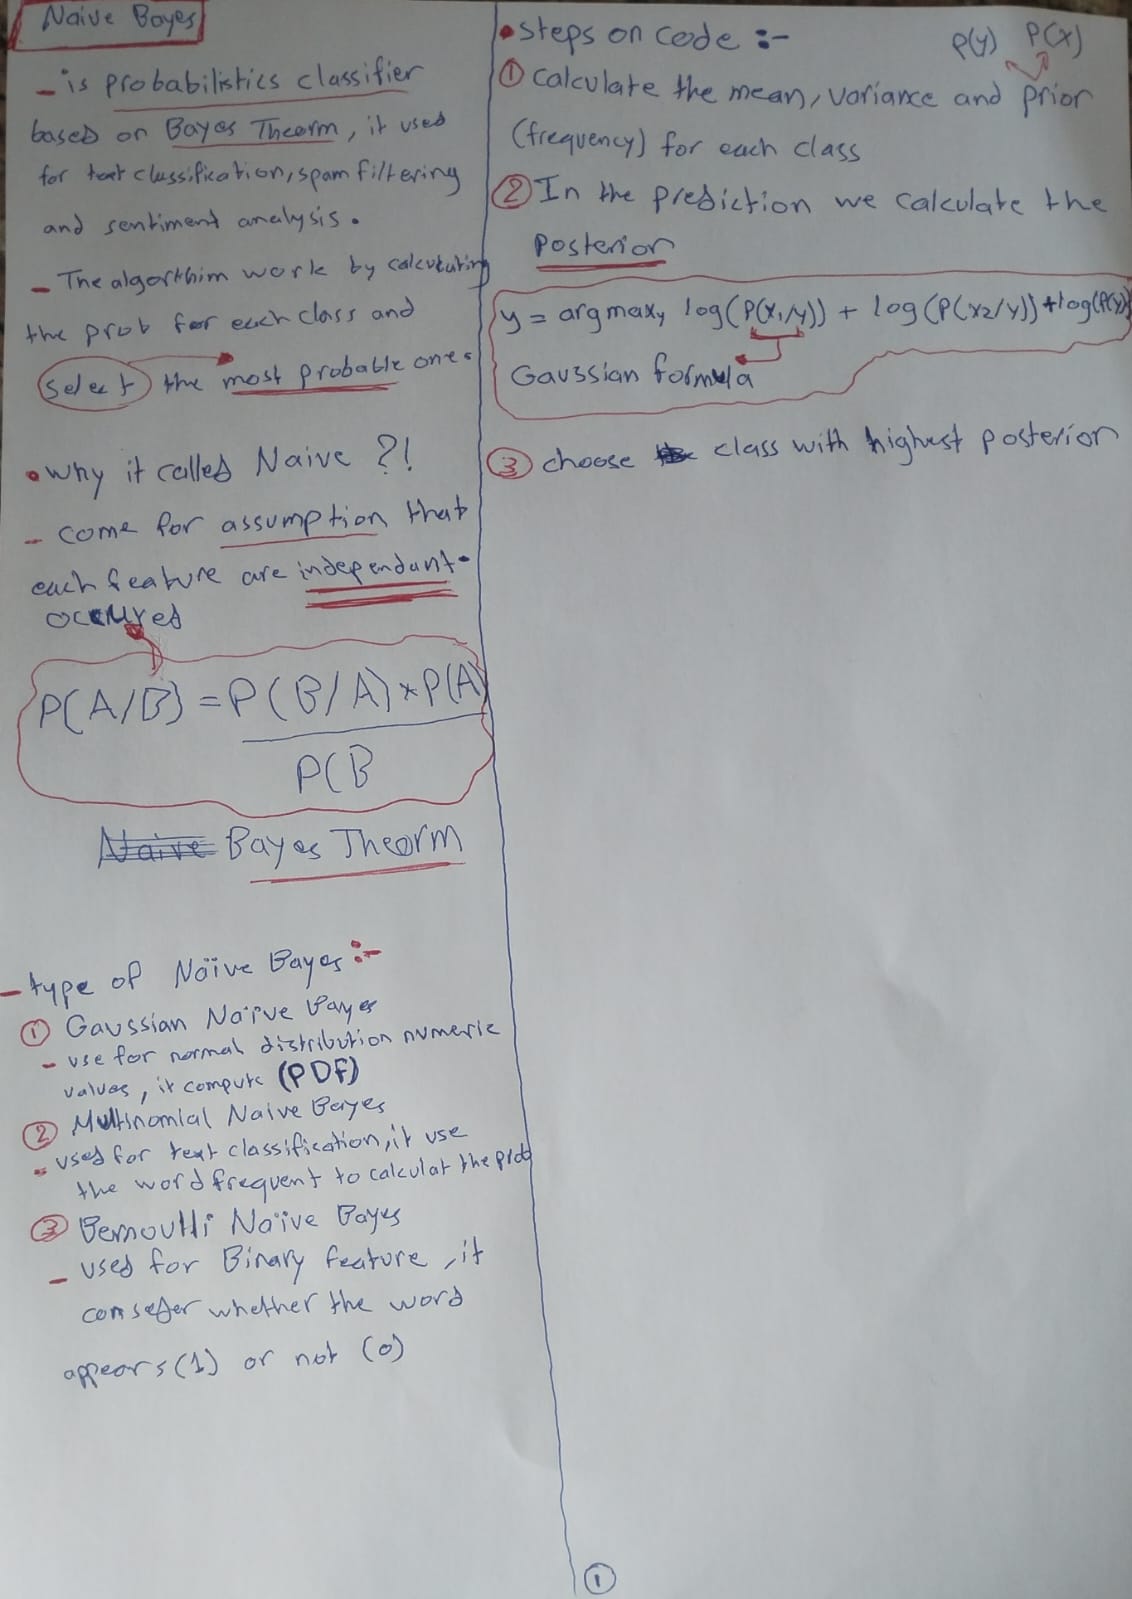 Naive Bayes
- is probabilistics classifier
based on Bayes Theorm, it used
for text classification, spam filtering
and sentiment analysis.
- The algorthim work by calculating
the prob for each class and
select the most probable one.
• why it called Naive ?!
- come for assumption that
each feature are independant.
occured
P(A/B) = P(B/A) * P(A)
P(B
Naive Bayes Theorm
- type of Naïve Bayes :-
① Gaussian Naïve Bayes
- use for normal distribution numeric
values, it compute (PDF)
② Multinomial Naive Bayes
- used for text classification, it use
the word frequent to calculat the prob
③ Bernoulli Naïve Bayes
- used for Binary feature, it
conseder whether the word
appears (1) or not (0)
• steps on code :-
P(y) P(X)
① calculate the mean, variance and prior
(frequency) for each class
② In the prediction we calculate the
posterior
y = argmaxy log(P(x1/y)) + log(P(x2/y)) + log(P(y))
Gaussian formula
③ choose class with highest posterior
①